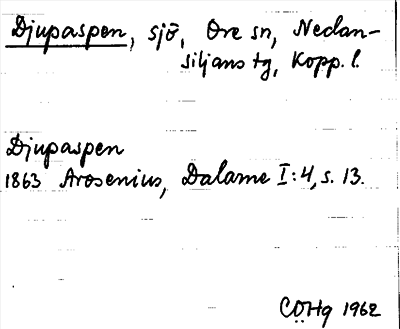 Djupaspen, sjö, Ore sn, Nedan-
siljans tg, Kopp. l.
Djupaspen
1863 Arosenius, Dalarne I:4, s. 13.
CÖHg 1962